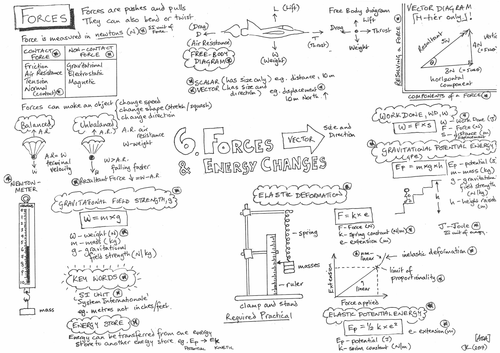 FORCES
Forces are pushes and pulls
They can also bend or twist
Force is measured in newtons (N)
CONTACT FORCE
NON-CONTACT FORCE
Friction
Air Resistance
Tension
Normal
(contact)
Gravitational
Electrostatic
Magnetic
Forces can make an object
change speed
change shape (stretch/squash)
change direction
L (Lift)
(Drag)
D
(Air Resistance)
T
(Thrust)
W
(Weight)
FREE-BODY
DIAGRAM
Free Body diagram
Lift
Drag
Thrust
Weight
SCALAR (has size only) eg. distance, 10m
VECTOR (has size and
direction) eg. displacement
10m North
VECTOR DIAGRAM
(H-tier only!)
RESOLVING A FORCE
Resultant
5N
3N
8N
horizontal
component
COMPONENTS of a FORCE
Balanced
A.R.
W
A.R = W
terminal
velocity
Unbalanced
A.R.
W
A.R. air
resistance
W-weight
W > A.R.
falling faster
Resultant Force ↓ = W-A.R
6. FORCES
& ENERGY CHANGES
VECTOR
Size and
direction
WORK DONE, WD, W
W = F x s
F - Force (N)
s - distance (m)
GRAVITATIONAL POTENTIAL ENERGY
(PE)
Ep = m x g x h
Ep - potential (J)
m - mass (kg)
g - gravitation
field strength
h - height raised
(m)
J - Joule
NEWTON-
METER
mass
GRAVITATIONAL FIELD STRENGTH, g
W = m x g
W - weight (N)
m - mass (kg)
g - gravitational
field strength (N/kg)
KEY WORDS
SI UNIT
Système Internationale
eg. metres not inches/feet
ENERGY STORE
Energy can be transferred from one energy
store to another energy store eg. Ep → Ek
POTENTIAL KINETIC
ELASTIC DEFORMATION
spring
masses
ruler
clamp and stand
Required Practical
F = k x e
F - Force (N)
k - spring constant (N/m)
e - extension (m)
non-
linear
inelastic deformation
limit of
proportionality
linear
Extension
Force applied
ELASTIC POTENTIAL ENERGY
Ep = ½ k x e²
e - extension (m)
Ep - potential (J)
k - spring constant (N/m)